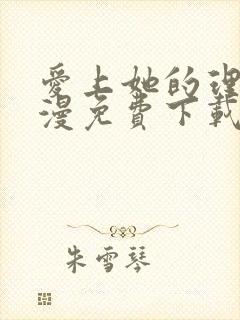 愛上她的理
漫免費下載
朱雪琴